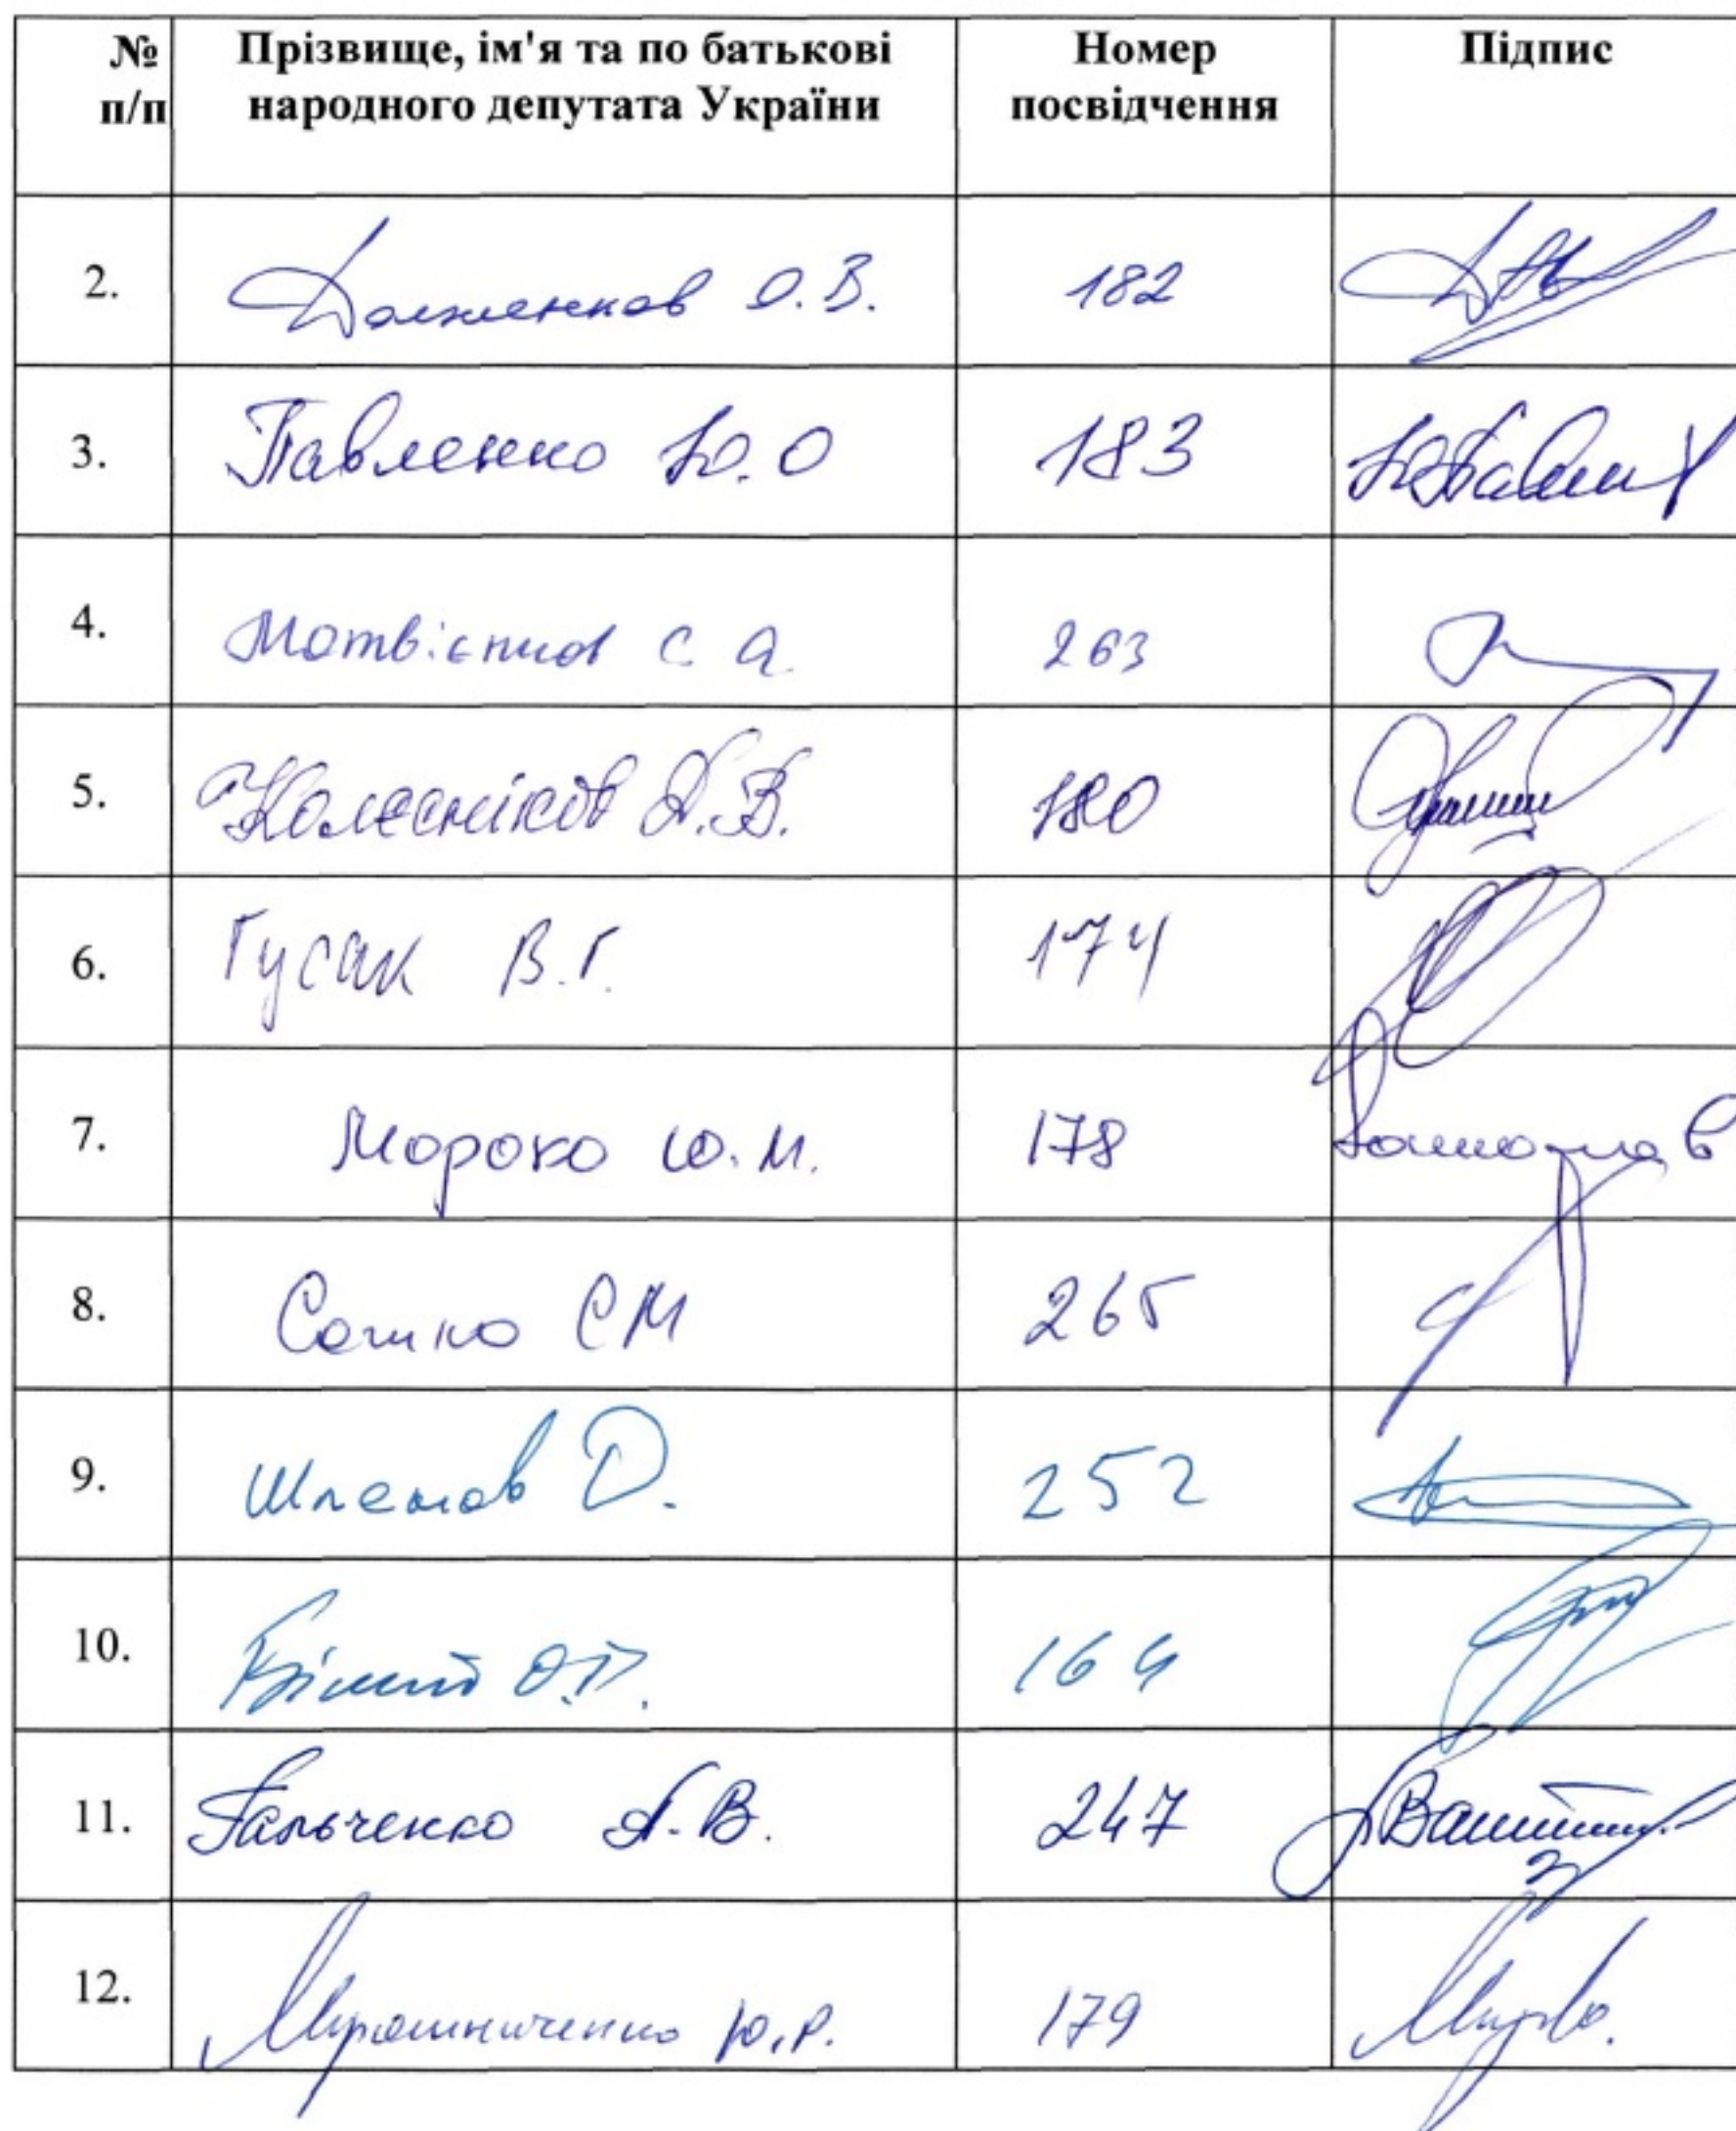 № п/п Прізвище, ім'я та по батькові народного депутата України Номер посвідчення Підпис
2. Долженков О.В. 182
3. Павленко Ю.О 183
4. Матвієнков С А. 263
5. Колєсніков Д.В. 180
6. Гусак В.Г. 174
7. Мороко Ю.М. 178
8. Сошко СМ 265
9. Шпенов Д. 252
10. О.П. 164
11. Гальченко А.В. 247
12. Мирошниченко Ю.Р. 179